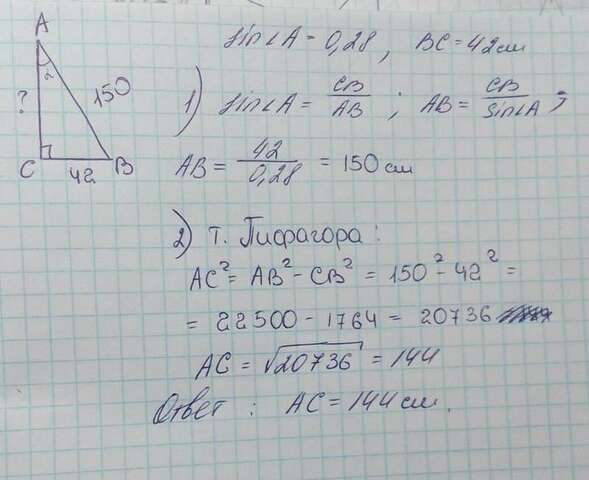 sin∠A = 0,28, BC = 42 см
A
α
?
150
C
42
B
1) sin∠A = CB/AB ; AB = CB/sin∠A ;
AB = 42/0,28 = 150 см
2) т. Пифагора:
AC² = AB² - CB² = 150² - 42² =
= 22500 - 1764 = 20736
AC = √20736 = 144
Ответ: AC = 144 см.